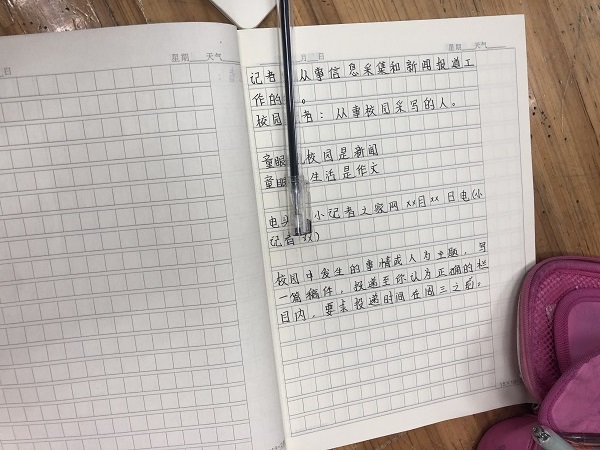 日 星期 天气
月 日 星期 天气
记者 从事信息采集和新闻报道工
作的 。
校园 者：从事校园采写的人。
童眼 校园是新闻
童眼 生活是作文
电头 小记者之家网xx月xx日电(小
记者xx)
校园中发生的事情或人为主题，写
一篇稿件，投递至你认为正确的栏
目内，要求投递时间在周三之前。